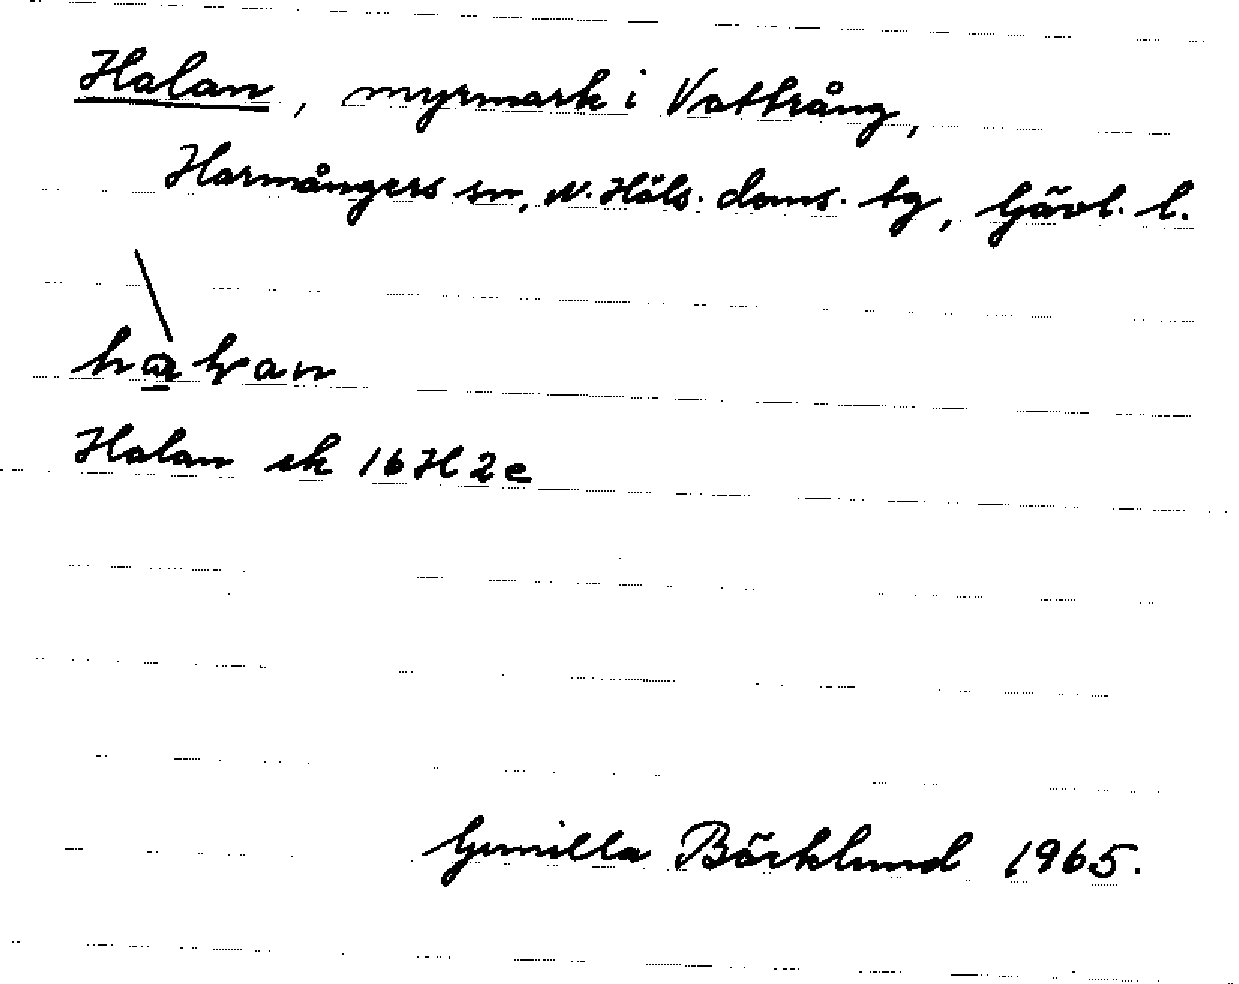 Halan, myrmark i Vattrång,
Harmångers sn, N. Häls. doms. tg, Gävl. l.
Halan ek 16H2e
Gunilla Bäcklund 1965.